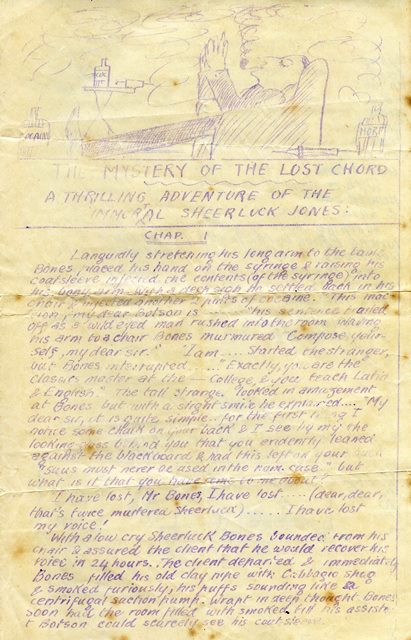 THE MYSTERY OF THE LOST CHORD
A THRILLING ADVENTURE OF THE
IMMORAL SHEERLUCK JONES:
CHAP. 1
Languidly stretching his long arm to the
Bones, placed his hand on the syringe & raising his
coatsleeve injected the contents (of the syringe) into
his bony arm. With a he settled back in his
chair & injected another 2 pints of cocaine. "This
my dear Botson is his sentence trailed
off as a wild eyed man rushed into the room. Waving
his arm to a chair Bones murmured "Compose your-
self, my dear sir." "I am .... Started the stranger,
but Bones interrupted .... "Exactly, you are the
classics master at the — College, & you teach Latin
& English." The tall stranger looked in amazement
at Bones but with a slight smile he explained.... "My
dear sir, it is quite simple. For the first thing I
notice some chalk on your back & I see by my the
looking glass behind you that you evidently leaned
against the blackboard & had this left on your back
must never be used in the nom. case." but
what is it that you have come to me about?"
I have lost, Mr Bones, I have lost .... (dear, dear,
that's twice muttered Sheerluck) ..... I have lost
my voice!
With a low cry Sheerluck Bones bounded from his
chair & assured the client that he would recover his
voice in 24 hours. The client departed & immediately
Bones filled his old clay pipe with Cibbagio shag
& smoked furiously, his puffs sounding like a
centrifugal suction pump. Wrapt in deep thought Bones
soon had the room filled with smoke till his assist
t Botson could scarcely see his coatsleeve